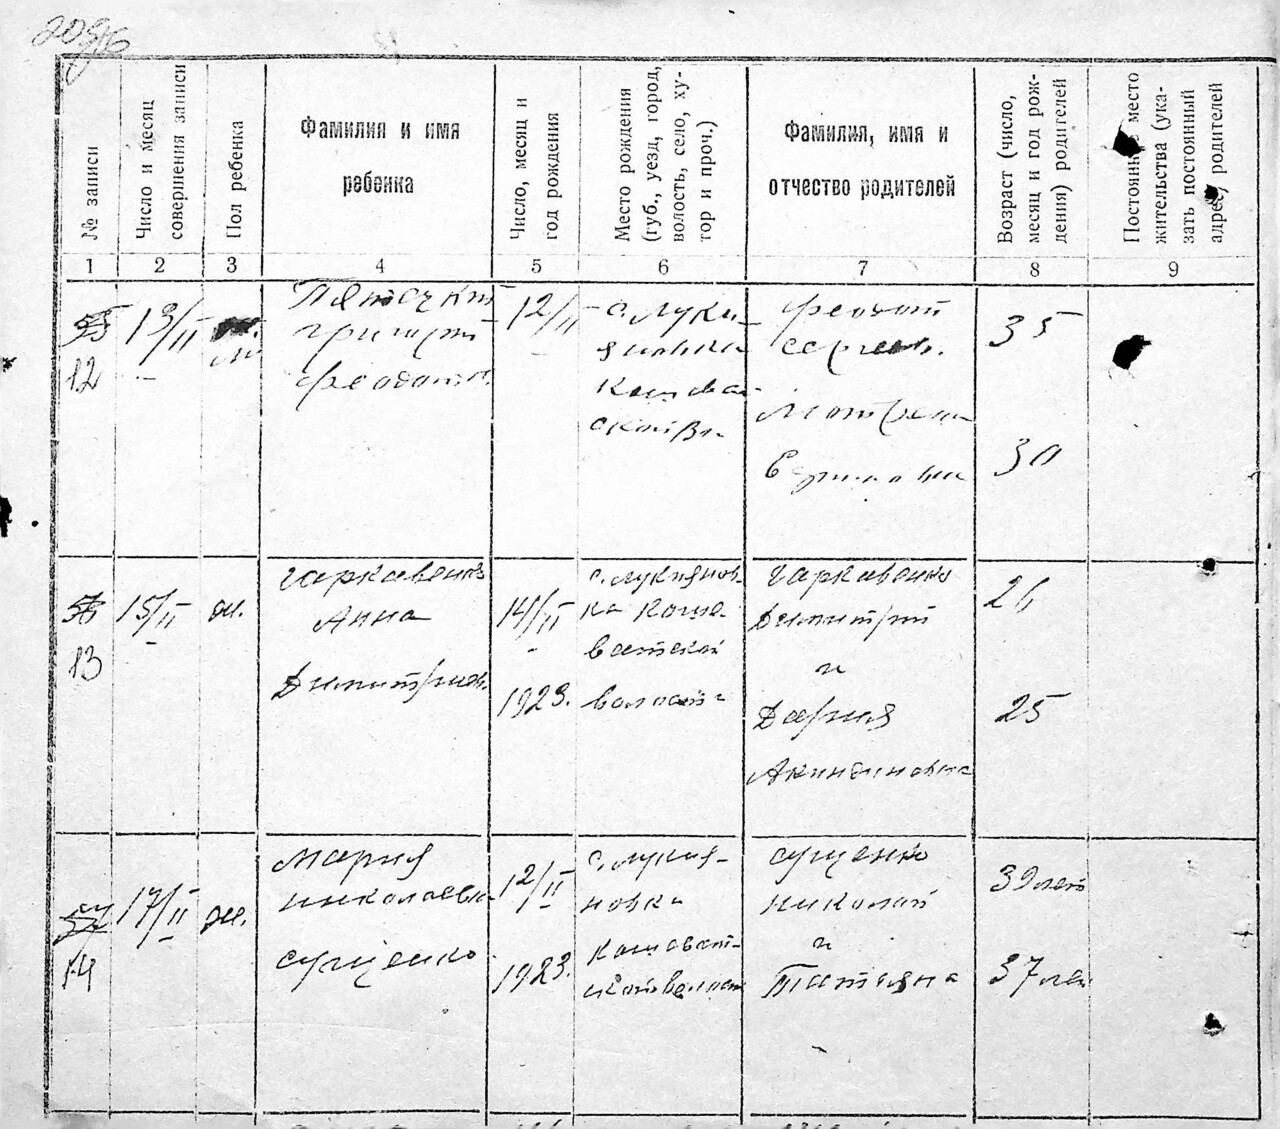 2096
№ записи
Число и месяц
совершения записи
Пол ребенка
Фамилия и имя
ребенка
Число, месяц и
год рождения
Место рождения
(губ., уезд, город,
волость, село, ху-
тор и проч.)
Фамилия, имя и
отчество родителей
Возраст (число,
месяц и год рож-
дения) родителей
место
жительства (ука-
зать постоянный
родителей
1 2 3 4 5 6 7 8 9
12
13/II
12/II
с. Луки-
яновка
Феодот
Сергеев.
35
30
13
15/II
ж.
Гаркавенко
Анна
Димитриев.
14/II
1923.
с. Лукиянов
ка Коше-
ватской
волости
Гаркавенко
Димитрий
и
Дария
Акиндиновна
26
25
14
17/II
ж.
Мария
Николаевна
Сущенко
12/II
1923.
с. Лукия-
новка
Кошоват-
Сущенко
Николай
и
Татьяна
39 лет
37 лет